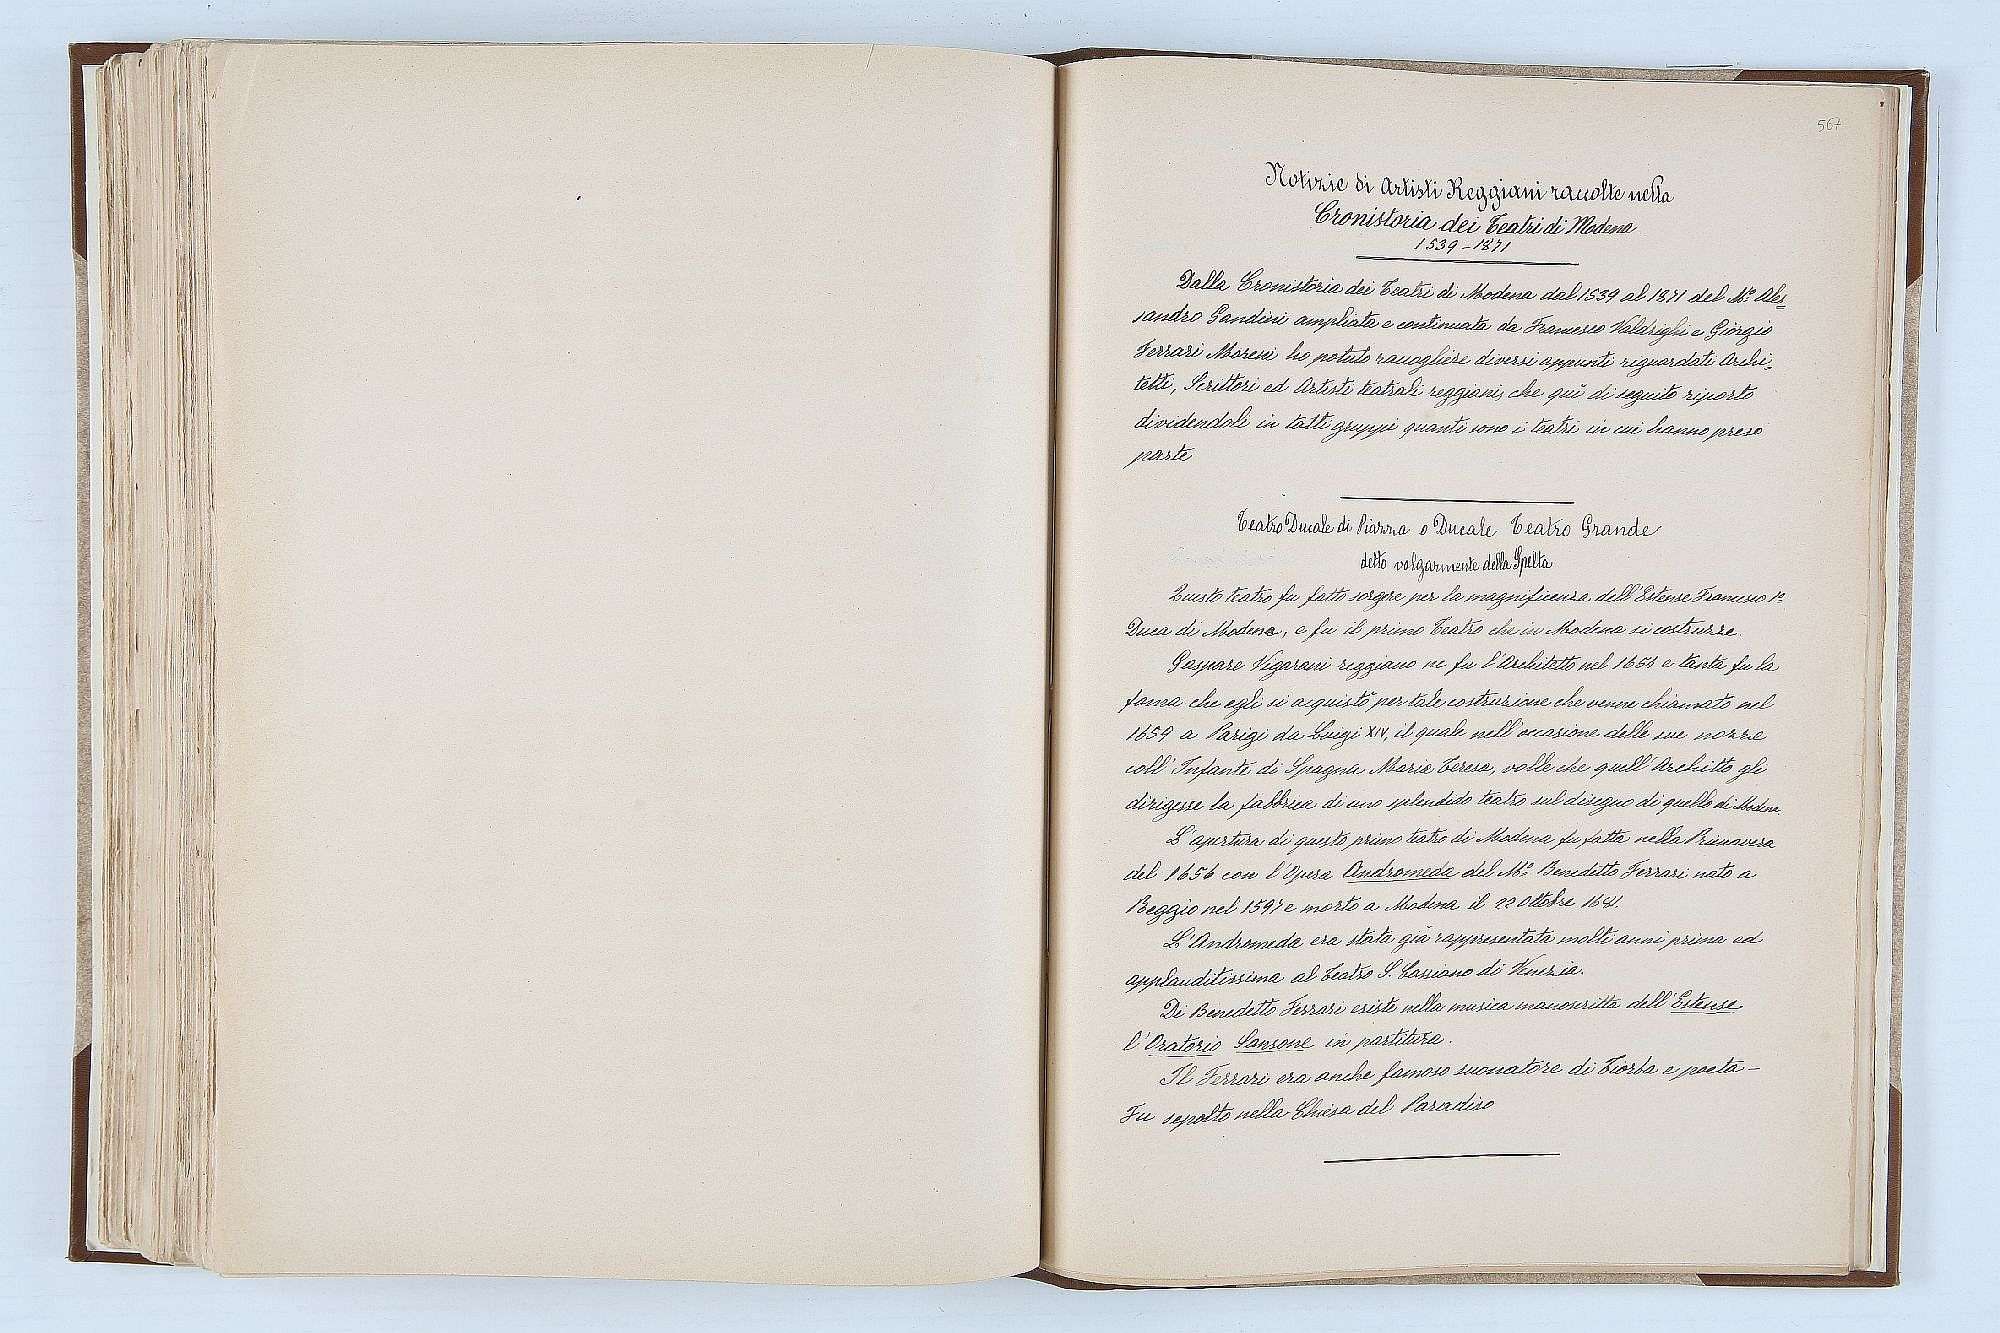 567
Notizie di Artisti Reggiani racuolte nella
Cronistoria dei Teatri di Modena
1539-1871
Dalla Cronistoria dei Teatri di Modena dal 1539 al 1871 del Mº Ales-
sandro Gandini ampliata e continuata da Francesco Valdrighi e Giorgio
Ferrari Moreni ho potuto racuogliere diversi appunti riguardati Archi-
tetti, Scrittori ed Artisti teatrali reggiani, che quì di seguito riporto
dividendoli in tatti gruppi quanti sono i teatri in cui hanno preso
parte
Teatro Ducale di Piazza o Ducale Teatro Grande
detto volgarmente della Spelta
Questo teatro fu fatto sorgere per la magnificenza dell'Estense Francesco Iº
Duca di Modena, e fu il primo Teatro che in Modena si costrusse.
Gaspare Vigarani reggiano ne fu l'Architetto nel 1656 e tanta fu la
fama che egli si acquistò per tale costruzione che venne chiamato nel
1659 a Parigi da Luigi XIV, il quale nell'occasione delle sue nozze
coll'Infante di Spagna Maria Teresa, volle che quell'Architto gli
dirigesse la fabbrica di uno splendido teatro sul disegno di quello di Modena.
L'apertura di questo primo teatro di Modena fu fatta nella Primavera
del 1656 con l'Opera Andromeda del Mº Benedetto Ferrari nato a
Reggio nel 1597 e morto a Modena il 22 Ottobre
L'Andromeda era stata già rappresentata molti anni prima ed
applauditissima al Teatro S. Cassiano di Venezia.
Di Benedetto Ferrari esiste nella musica manoscritta dell'Estense
l'Oratorio Sansone in partitura.
Il Ferrari era anche famoso suonatore di Tiorba e poeta -
Fu sepolto nella Chiesa del Paradiso